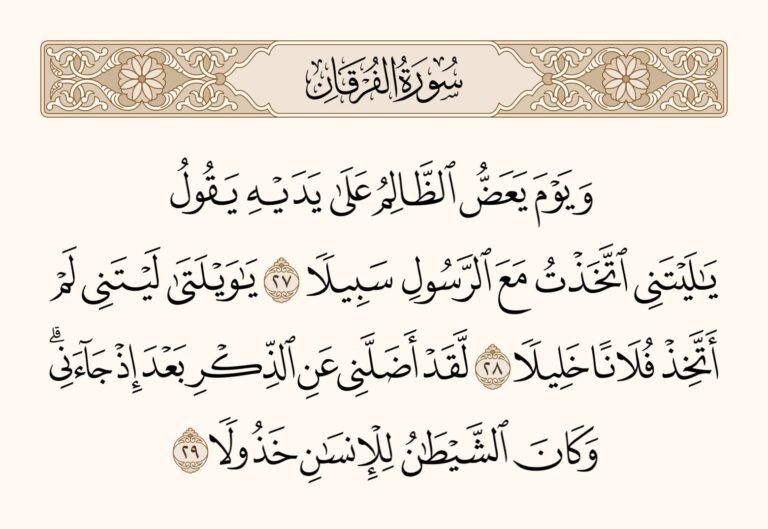 سُورَةُ الفُرْقَانِ
وَيَوۡمَ يَعَضُّ ٱلظَّالِمُ عَلَىٰ يَدَيۡهِ يَقُولُ
يَٰلَيۡتَنِي ٱتَّخَذۡتُ مَعَ ٱلرَّسُولِ سَبِيلٗا ٢٧ يَٰوَيۡلَتَىٰ لَيۡتَنِي لَمۡ
أَتَّخِذۡ فُلَانًا خَلِيلٗا ٢٨ لَّقَدۡ أَضَلَّنِي عَنِ ٱلذِّكۡرِ بَعۡدَ إِذۡ جَآءَنِيۗ
وَكَانَ ٱلشَّيۡطَٰنُ لِلۡإِنسَٰنِ خَذُولٗا ٢٩